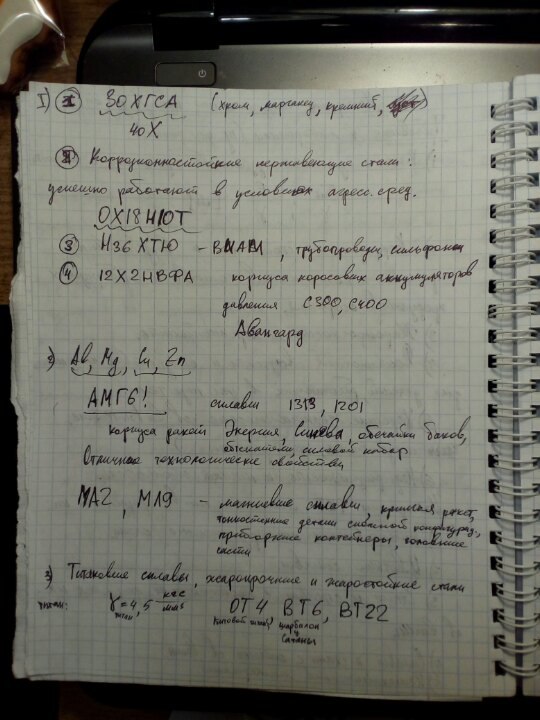 I) ① 30ХГСА (хром, марганец, кремний,
40Х
② Коррозионностойкие нержавеющие стали:
успешно работают в условиях агресс. сред.
0Х18Н10Т
③ Н36ХТЮ – ВНАМ, трубопроводы, сильфоны
④ 12Х2НВФА корпуса аккумуляторов
давления С300, С400
Авангард
2) Al, Mg, Cu, Zn
АМГ6! сплавы 1313, 1201
корпуса ракет Энергия, Синева, обечайки баков,
силовой набор
Отличные технологические свойства
МА2, МЛ9 – магниевые сплавы, крылья ракет,
тонкостенные детали сложной конфигурац.,
приборные контейнеры, головные
части
3) Титановые сплавы, жаропрочные и жаростойкие стали
титан: γ = 4,5 кгс/мм³ ОТ4, ВТ6, ВТ22
титан листовой титан, шарбалон
и
Сатаны